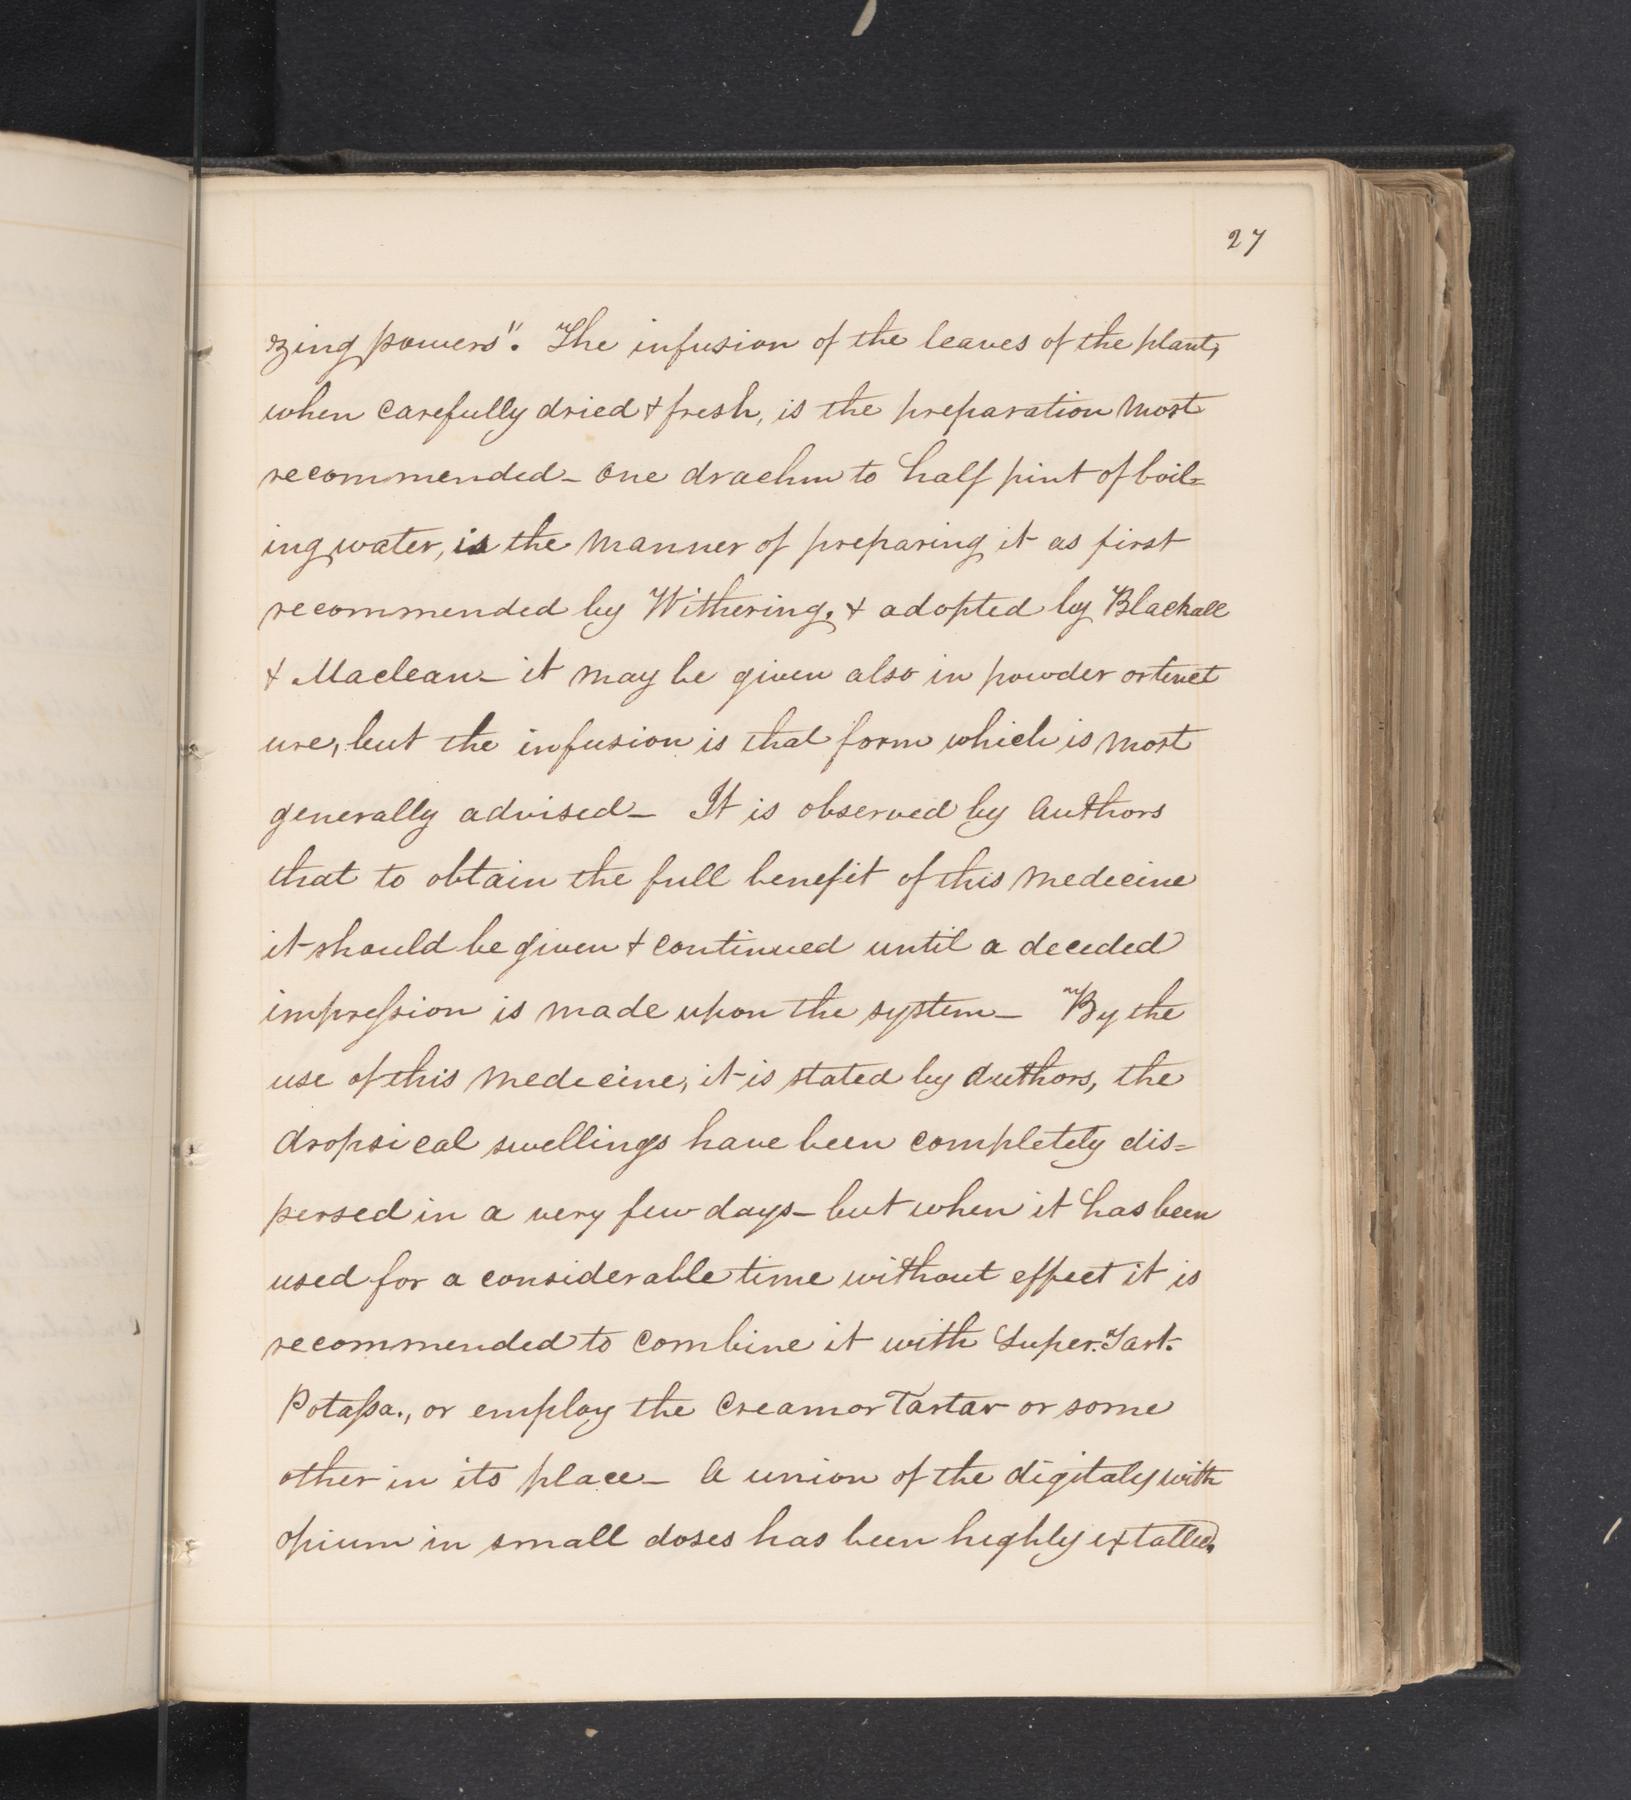 27
zing powers". The infusion of the leaves of the plant,
when carefully dried & fresh, is the preparation most
recommended- One drachm to half pint of boil=
ing water, is the manner of preparing it as first
recommended by Withering, & adopted by Blackall
& Maclean- it may be given also in powder or tinct
ure, but the infusion is that form which is most
generally advised- It is observed by Authors
that to obtain the full benefit of this medicine
it should be given & continued until a decided
impression is made upon the system- By the
use of this medicine, it is stated by Authors, the
dropsical swellings have been completely dis=
persed in a very few days- but when it has been
used for a considerable time without effect it is
recommended to combine it with Super. Tart.
Potassa., or employ the Creamor Tartar or some
other in its place- A union of the digitalis with
opium in small doses has been highly extolled.